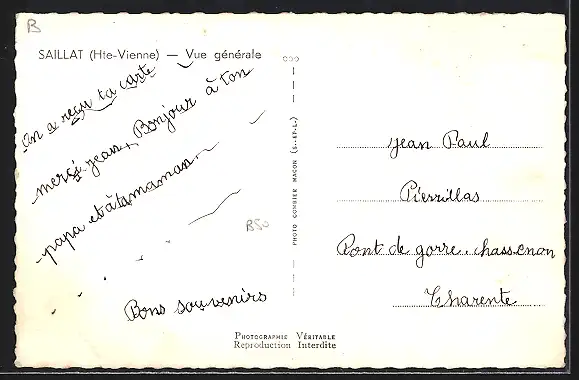 B
SAILLAT (Hte-Vienne) — Vue générale
On a reçu ta carte
merci jean, Bonjour à ton
papa et à ta maman.
Bons souvenirs
B50
PHOTO COMBIER MACON (S.-ET-L.)
Jean Paul
Pierrillas
Pont de gorre. chassenon
Charente
PHOTOGRAPHIE VÉRITABLE
Reproduction Interdite